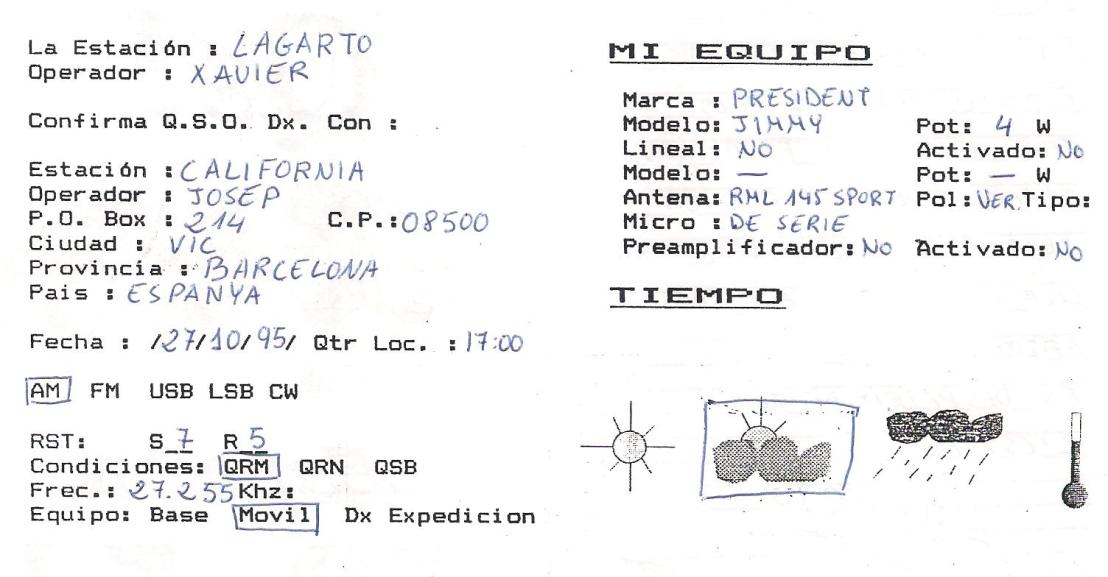 La Estación : LAGARTO
Operador : XAVIER
Confirma Q.S.O. Dx. Con :
Estación : CALIFORNIA
Operador : JOSEP
P.O. Box : 214 C.P.: 08500
Ciudad : VIC
Provincia : BARCELONA
Pais : ESPANYA
Fecha : /27/10/95/ Qtr Loc. : 17:00
AM FM USB LSB CW
RST: S 7 R 5
Condiciones: QRM QRN QSB
Frec.: 27.255 Khz:
Equipo: Base Movil Dx Expedicion
MI EQUIPO
Marca : PRESIDENT
Modelo: JIMMY Pot: 4 W
Lineal: NO Activado: NO
Modelo: — Pot: — W
Antena: RML 145 SPORT Pol: VER. Tipo:
Micro : DE SERIE
Preamplificador: NO Activado: NO
TIEMPO